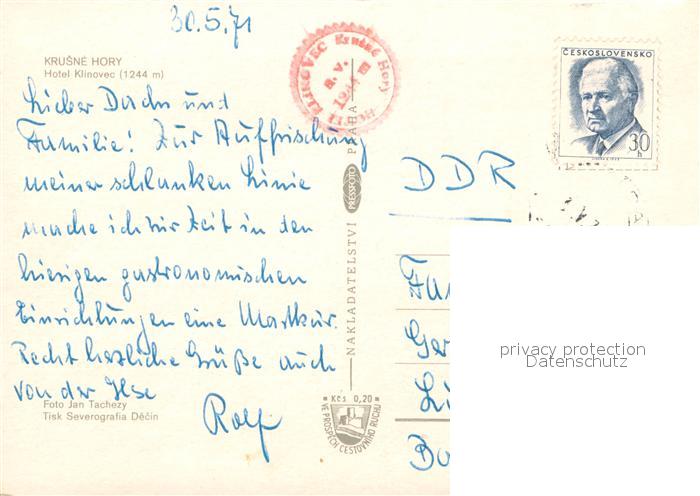 30.5.71
KRUŠNÉ HORY
Hotel Klínovec (1244 m)
Lieber Dadn und
Familie! Zur Auffrischung
meiner schlanken Linie
mache ich zur Zeit in den
hiesigen gastronomischen
Einrichtungen eine Mastkur.
Recht herzliche Grüße auch
von der Ilse
Rolf
Foto Jan Tachezy
Tisk Severografia Děčín
HOTEL KLÍNOVEC Krušné Hory
n. v. 1244 m
NAKLADATELSTVÍ PRESSFOTO PRAHA
Kčs 0,20
VE PROSPĚCH CESTOVNÍHO RUCHU
ČESKOSLOVENSKO
30 h
DDR
Fam
Ger
Li
Ba
privacy protection
Datenschutz